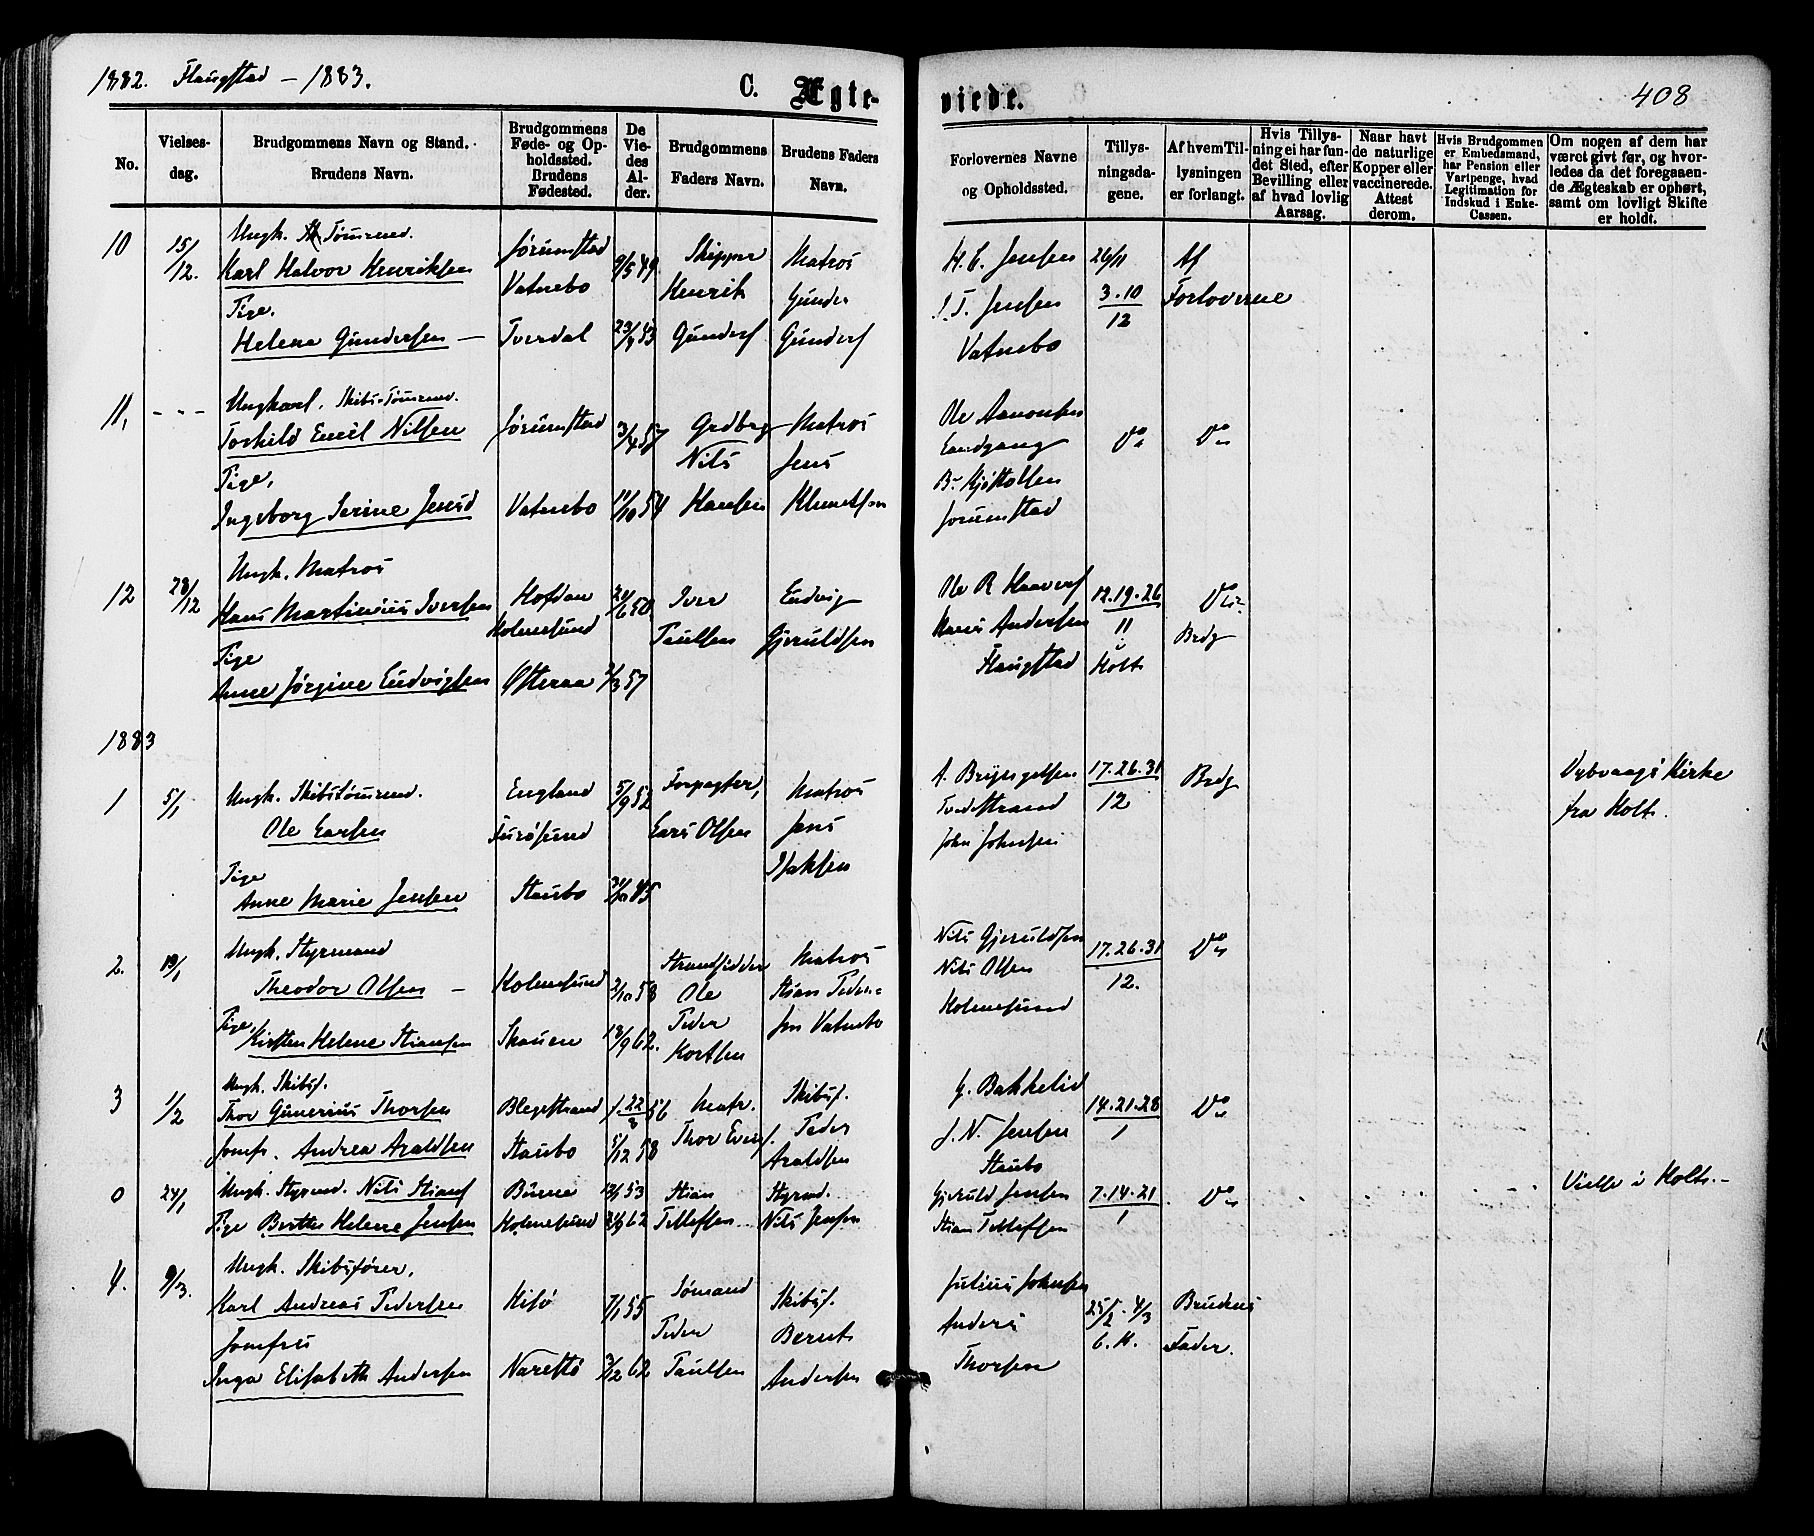 1882. Flaugstad - 1883.
C. Ægteviede.
408
No.
Vielsesdag.
Brudgommens Navn og Stand.
Brudens Navn.
Brudgommens Føde- og Opholdssted. Brudens Fødested.
De Viedes Alder.
Brudgommens Faders Navn.
Brudens Faders Navn.
Forlovernes Navne og Opholdssted.
Tillysningsdagene.
Af hvem Tillysningen er forlangt.
Hvis Tillysning ei har fundet Sted, efter Bevilling eller af hvad lovlig Aarsag.
Naar havt de naturlige Kopper eller vaccinerede. Attest derom.
Hvis Brudgommen er Embedsmand, har Pension eller Vartpenge, hvad Legitimation for Indskud i Enke-Cassen.
Om nogen af dem har været givt før, og hvorledes da det foregaaende Ægteskab er ophørt, samt om lovligt Skifte er holdt.
10 15/12. Ungk. Tømrmd.
Karl Halvor Henriksen Jørumstad Vatnebo 9/5 49 Skipper Henrik Gunders Matros Gunder Gunders
Pige.
Helene Gundersen - Tverdal 53
H. E. Jensen
J. T. Jensen
Vatnebo
26/11
3.10/12
Af Forloverne
11, - - - Ungkarl. Skibs-Tømrmd.
Torkild Emil Nilsen Jørumstad 3/4 57 Gadbrg Nils Hansen Matros Jens Klemetsen
Pige,
Ingeborg Serine Jensd Vatnebo 11/10 54
Ole Aanonsen
Landgang
B. Kjøstolsen
Jorumstad
Do Do
12 28/12 Ungk. Matros
Hans Martinius Iversen Hofdan Holmesund 24/6 50 Iver Paulsen Ludvig Gjeruldsen
Pige
Anne Jørgine Ludvigsen Osteraa 2/3 57
Ole R Haavors
Maris Andersen
Flaugstad
12.19.26/11
Holt
Do
Brdg
1883
1 5/1 Ungk. Skibstømrmd.
Ole Larsen England Furøsund 5/9 52 Forpagter, Lars Olsen Matros Jens Isaksen
Pige
Anne Marie Jensen Staubo 45
A. Brynjulfsen
Tvedestrand
John Johnsen
17.26.31/12
Brdg
Dybvaags Kirke
fra Holt.
2. 19/1 Ungk. Styrmand
Theodor Olsen - Holmesund 2/10 58 Strandsidder Ole Peder Kortsen Matros Stian Pedersen Vatnebo
Pige,
Kirsten Helene Stiansen Skauen 18/9 62.
Nils Gjeruldsen
Nils Olsen
Holmesund
17.26.31/12.
Do
3 1/2 Ungk. Skibsf.
Thor Gunerius Thorsen Blegestrand 22/8 56 Matr. Thor Evens. Skibsf. Peder Araldsen
Jomfr. Andrea Araldsen Staubo 5/12 58
G. Bakkelid
J. N. Jensen
Staubo
14.21.28/1
Do
0 24/1 Ungk. Styrmd. Nils Stians Buene 53 Stian Tellefsen Styrmd. Nils Jensen
Pige Berthe Helene Jensen Holmesund 62
Gjeruld Jensen
Stian Tellefsen
7.14.21/1
Do
Vielse i Holt. -
4. 9/3. Ungk. Skibsfører.
Karl Andreas Pedersen Kilø 7/1 55 Sømand Peder Paulsen Skibsf. Bernt Andersen
Jomfru
Inga Elisabeth Andersen Narestø 3/12 62
Julius Johnsen
Anders
Thorsen
25/2. 4/3
6. M.
Brudens
Fader.